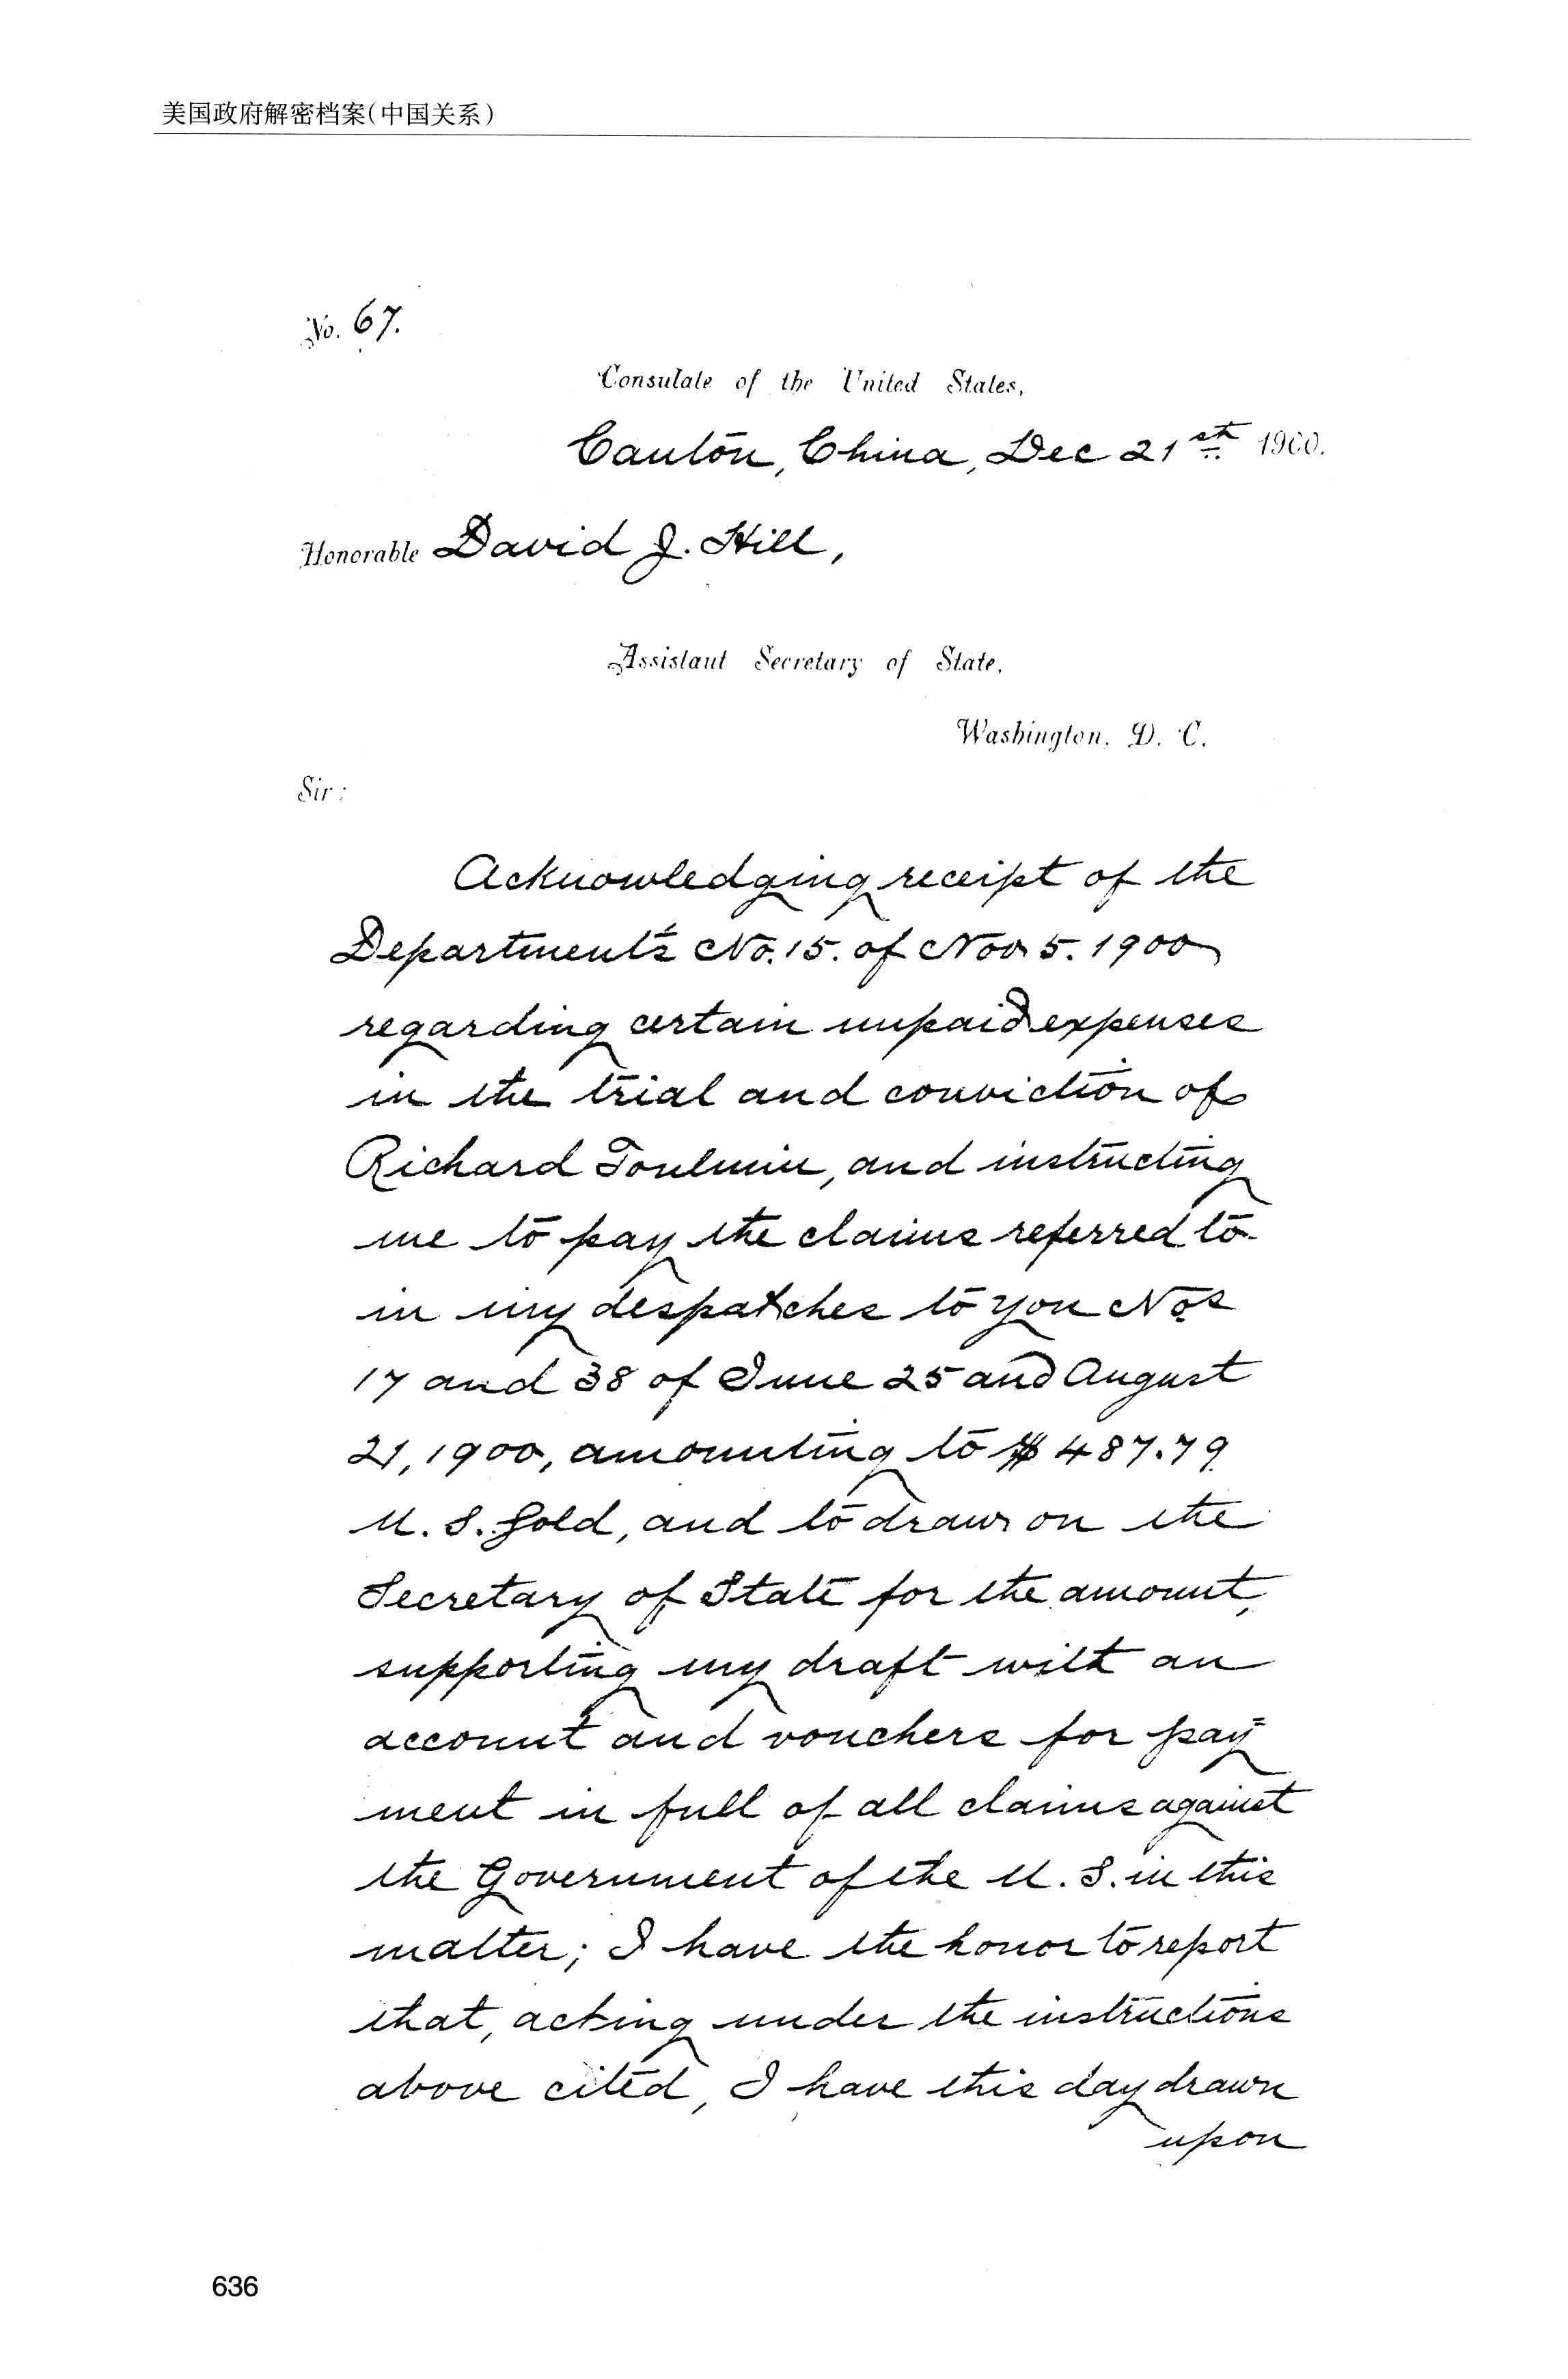 美国政府解密档案(中国关系)
No. 67.
Consulate of the United States,
Canton, China, Dec 21st 1900.
Honorable David J. Hill,
Assistant Secretary of State,
Washington, D. C.
Sir:
Acknowledging receipt of the
Department's No. 15. of Nov 5. 1900
regarding certain unpaid expenses
in the trial and conviction of
Richard Toulmin, and instructing
me to pay the claims referred to
in my despatches to you Nos
17 and 38 of June 25 and August
21, 1900, amounting to $487.79
U. S. Gold, and to draw on the
Secretary of State for the amount,
supporting my draft with an
account and vouchers for pay=
ment in full of all claims against
the Government of the U. S. in this
matter; I have the honor to report
that, acting under the instructions
above cited, I have this day drawn
upon
636